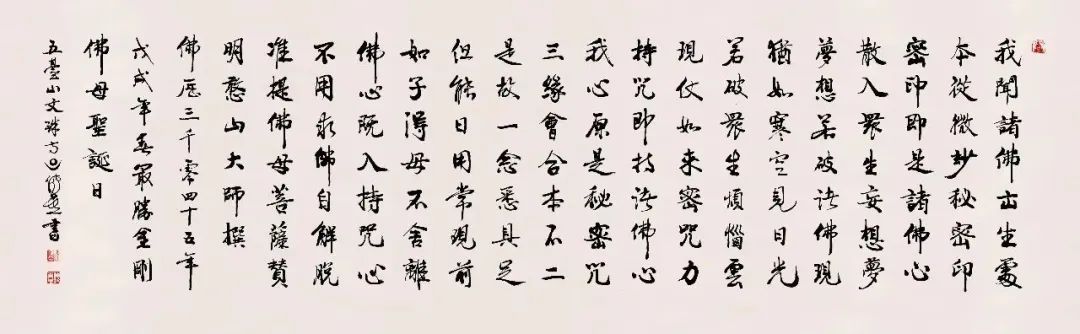 我聞諸佛出生處
本從微妙秘密印
密印即是諸佛心
散入眾生妄想夢
夢想若破諸佛現
猶如寒空見日光
若破眾生煩惱雲
現仗如來密咒力
持咒即持諸佛心
我心原是秘密咒
三緣會合本不二
是故一念悉具足
但能日用常現前
如子得母不舍離
佛心既入持咒心
不用求佛自解脫
准提佛母菩薩贊
明憨山大師撰
佛歷三千零四十五年
戊戌年最勝金剛
佛母聖誕日
五臺山文殊書